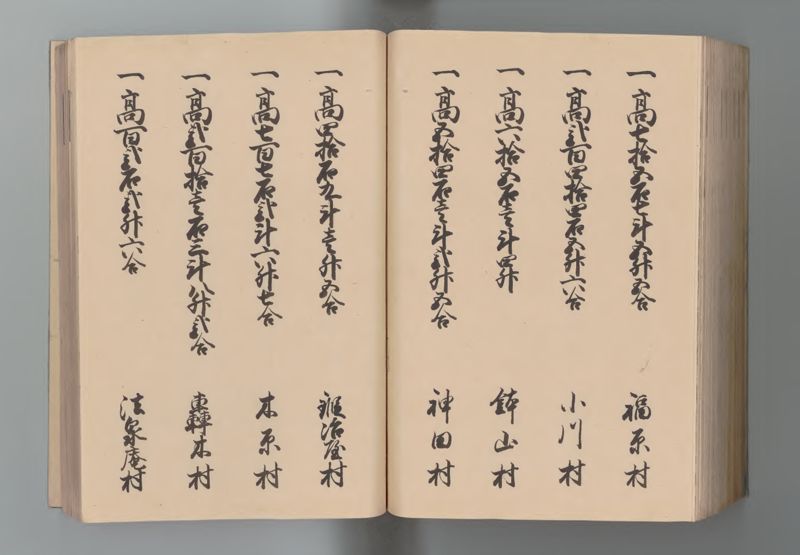 一 高七拾五石七斗五升五合 福原村
一 高弐百四拾四石五升六合 小川村
一 高六拾五石壱斗四升 鉢山村
一 高五拾四石壱斗弐升五合 神田村
一 高四拾石九斗壱升五合 鍛冶屋村
一 高七百七石弐斗六升七合 木原村
一 高弐百拾壱石三斗八升弐合 轟木村
一 高百弐石弐升六合